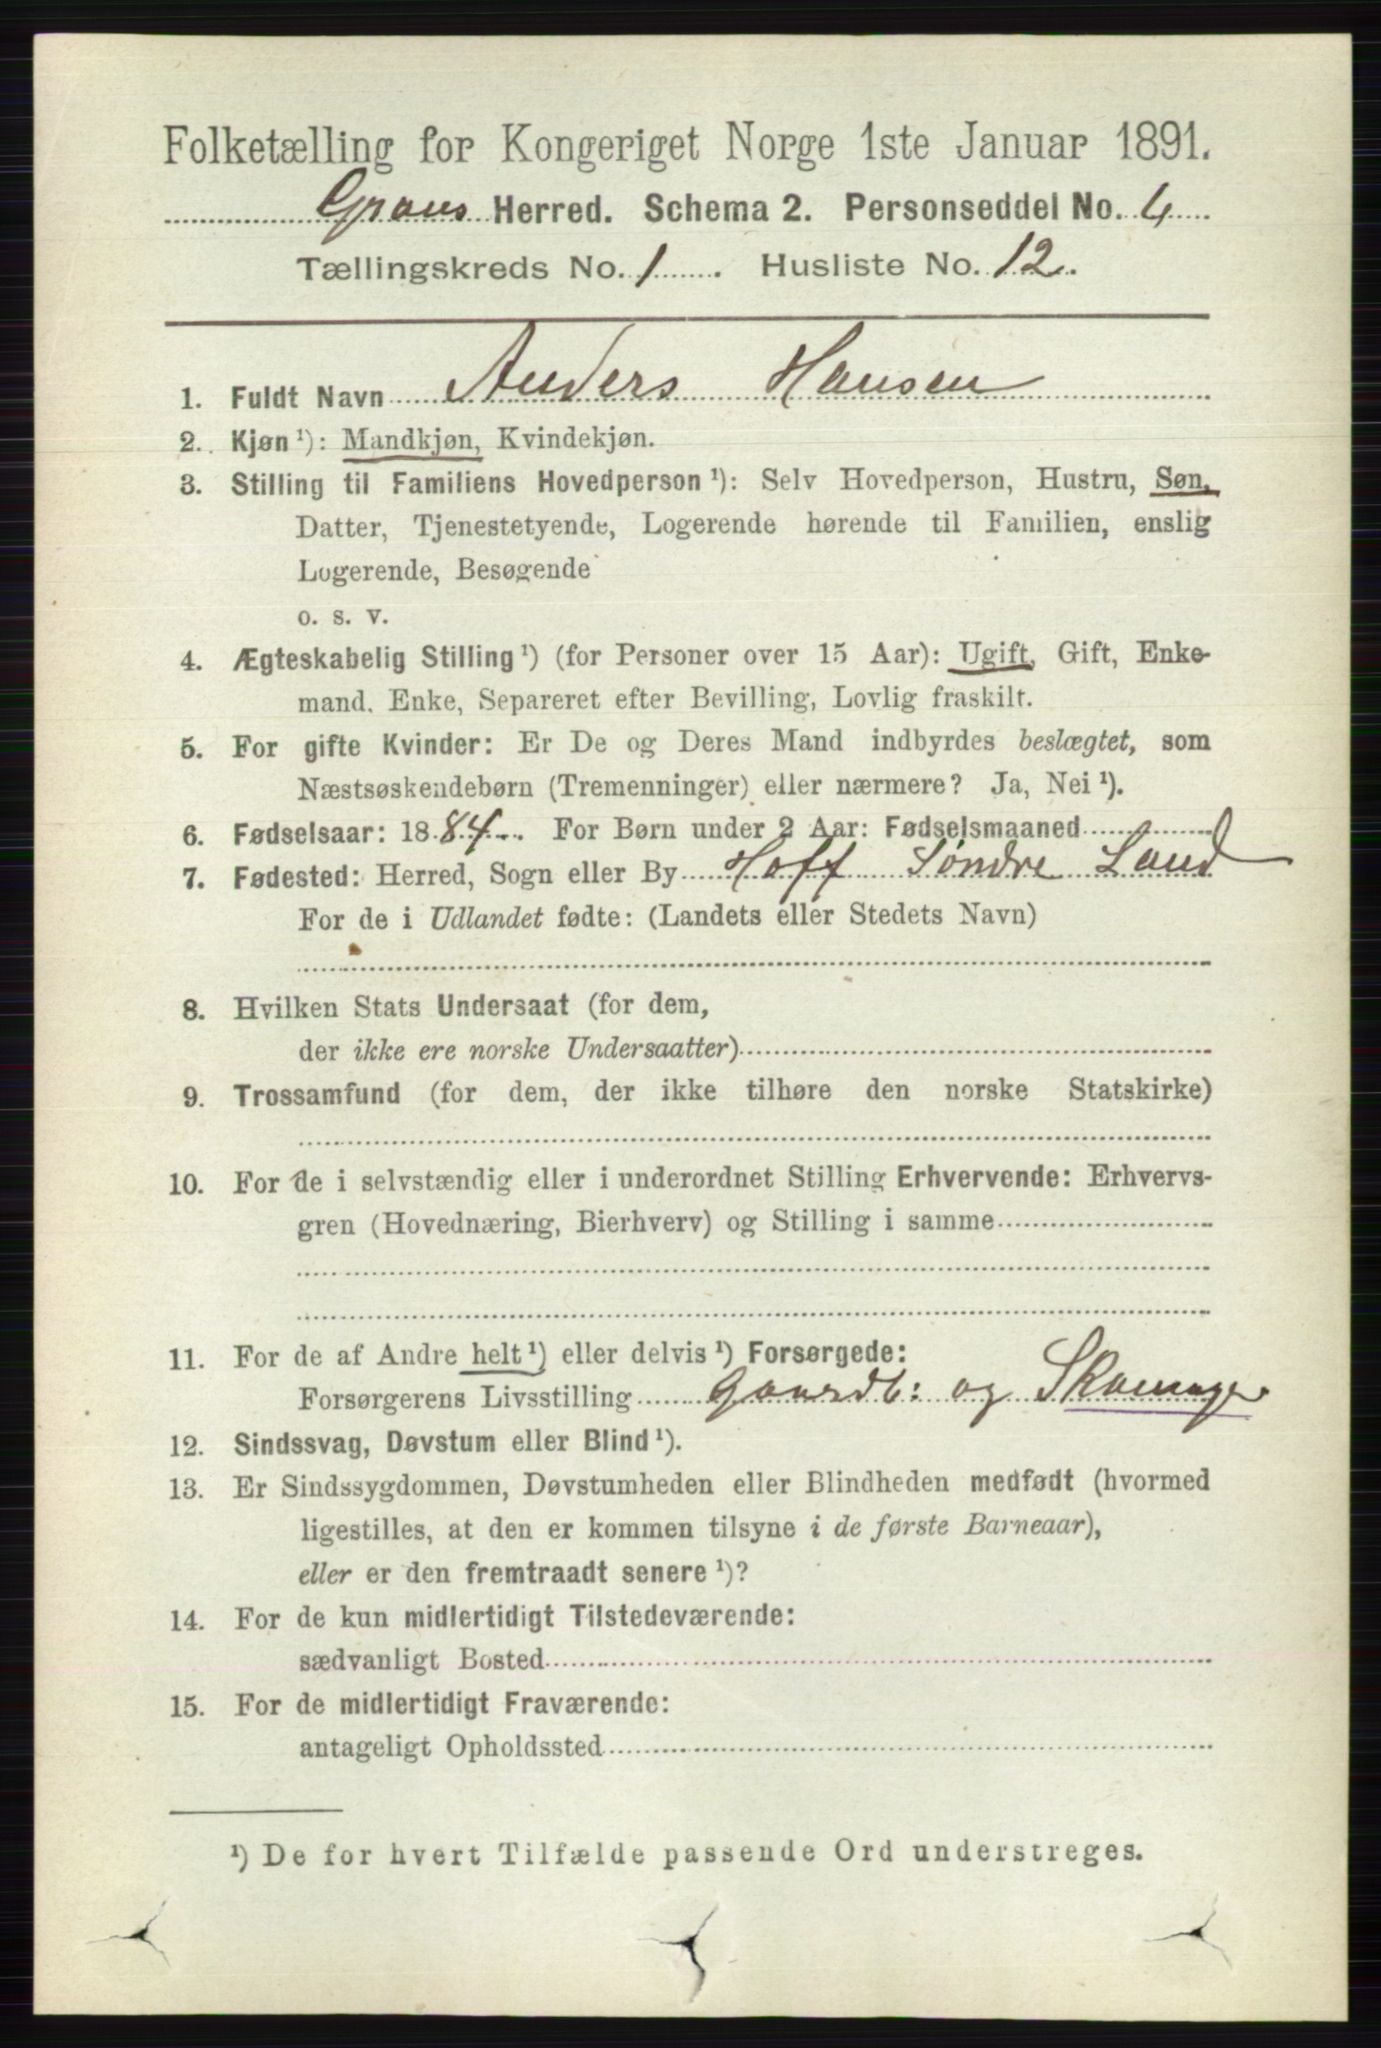 Folketælling for Kongeriget Norge 1ste Januar 1891.
Grans Herred. Schema 2. Personseddel No. 4
Tællingskreds No. 1. Husliste No. 12.
1. Fuldt Navn Anders Hansen
2. Kjøn ¹): Mandkjøn, Kvindekjøn.
3. Stilling til Familiens Hovedperson ¹): Selv Hovedperson, Hustru, Søn,
Datter, Tjenestetyende, Logerende hørende til Familien, enslig
Logerende, Besøgende
o. s. v.
4. Ægteskabelig Stilling ¹) (for Personer over 15 Aar): Ugift, Gift, Enke-
mand, Enke, Separeret efter Bevilling, Lovlig fraskilt.
5. For gifte Kvinder: Er De og Deres Mand indbyrdes beslægtet, som
Næstsøskendebørn (Tremenninger) eller nærmere? Ja, Nei ¹).
6. Fødselsaar: 1884. For Børn under 2 Aar: Fødselsmaaned
7. Fødested: Herred, Sogn eller By Hoff Søndre Land
For de i Udlandet fødte: (Landets eller Stedets Navn)
8. Hvilken Stats Undersaat (for dem,
der ikke ere norske Undersaatter)
9. Trossamfund (for dem, der ikke tilhøre den norske Statskirke)
10. For de i selvstændig eller i underordnet Stilling Erhvervende: Erhvervs-
gren (Hovednæring, Bierhverv) og Stilling i samme
11. For de af Andre helt ¹) eller delvis ¹) Forsørgede:
Forsørgerens Livsstilling Gaardb: og Skomager
12. Sindssvag, Døvstum eller Blind ¹).
13. Er Sindssygdommen, Døvstumheden eller Blindheden medfødt (hvormed
ligestilles, at den er kommen tilsyne i de første Barneaar),
eller er den fremtraadt senere ¹)?
14. For de kun midlertidigt Tilstedeværende:
sædvanligt Bosted
15. For de midlertidigt Fraværende:
antageligt Opholdssted
¹) De for hvert Tilfælde passende Ord understreges.